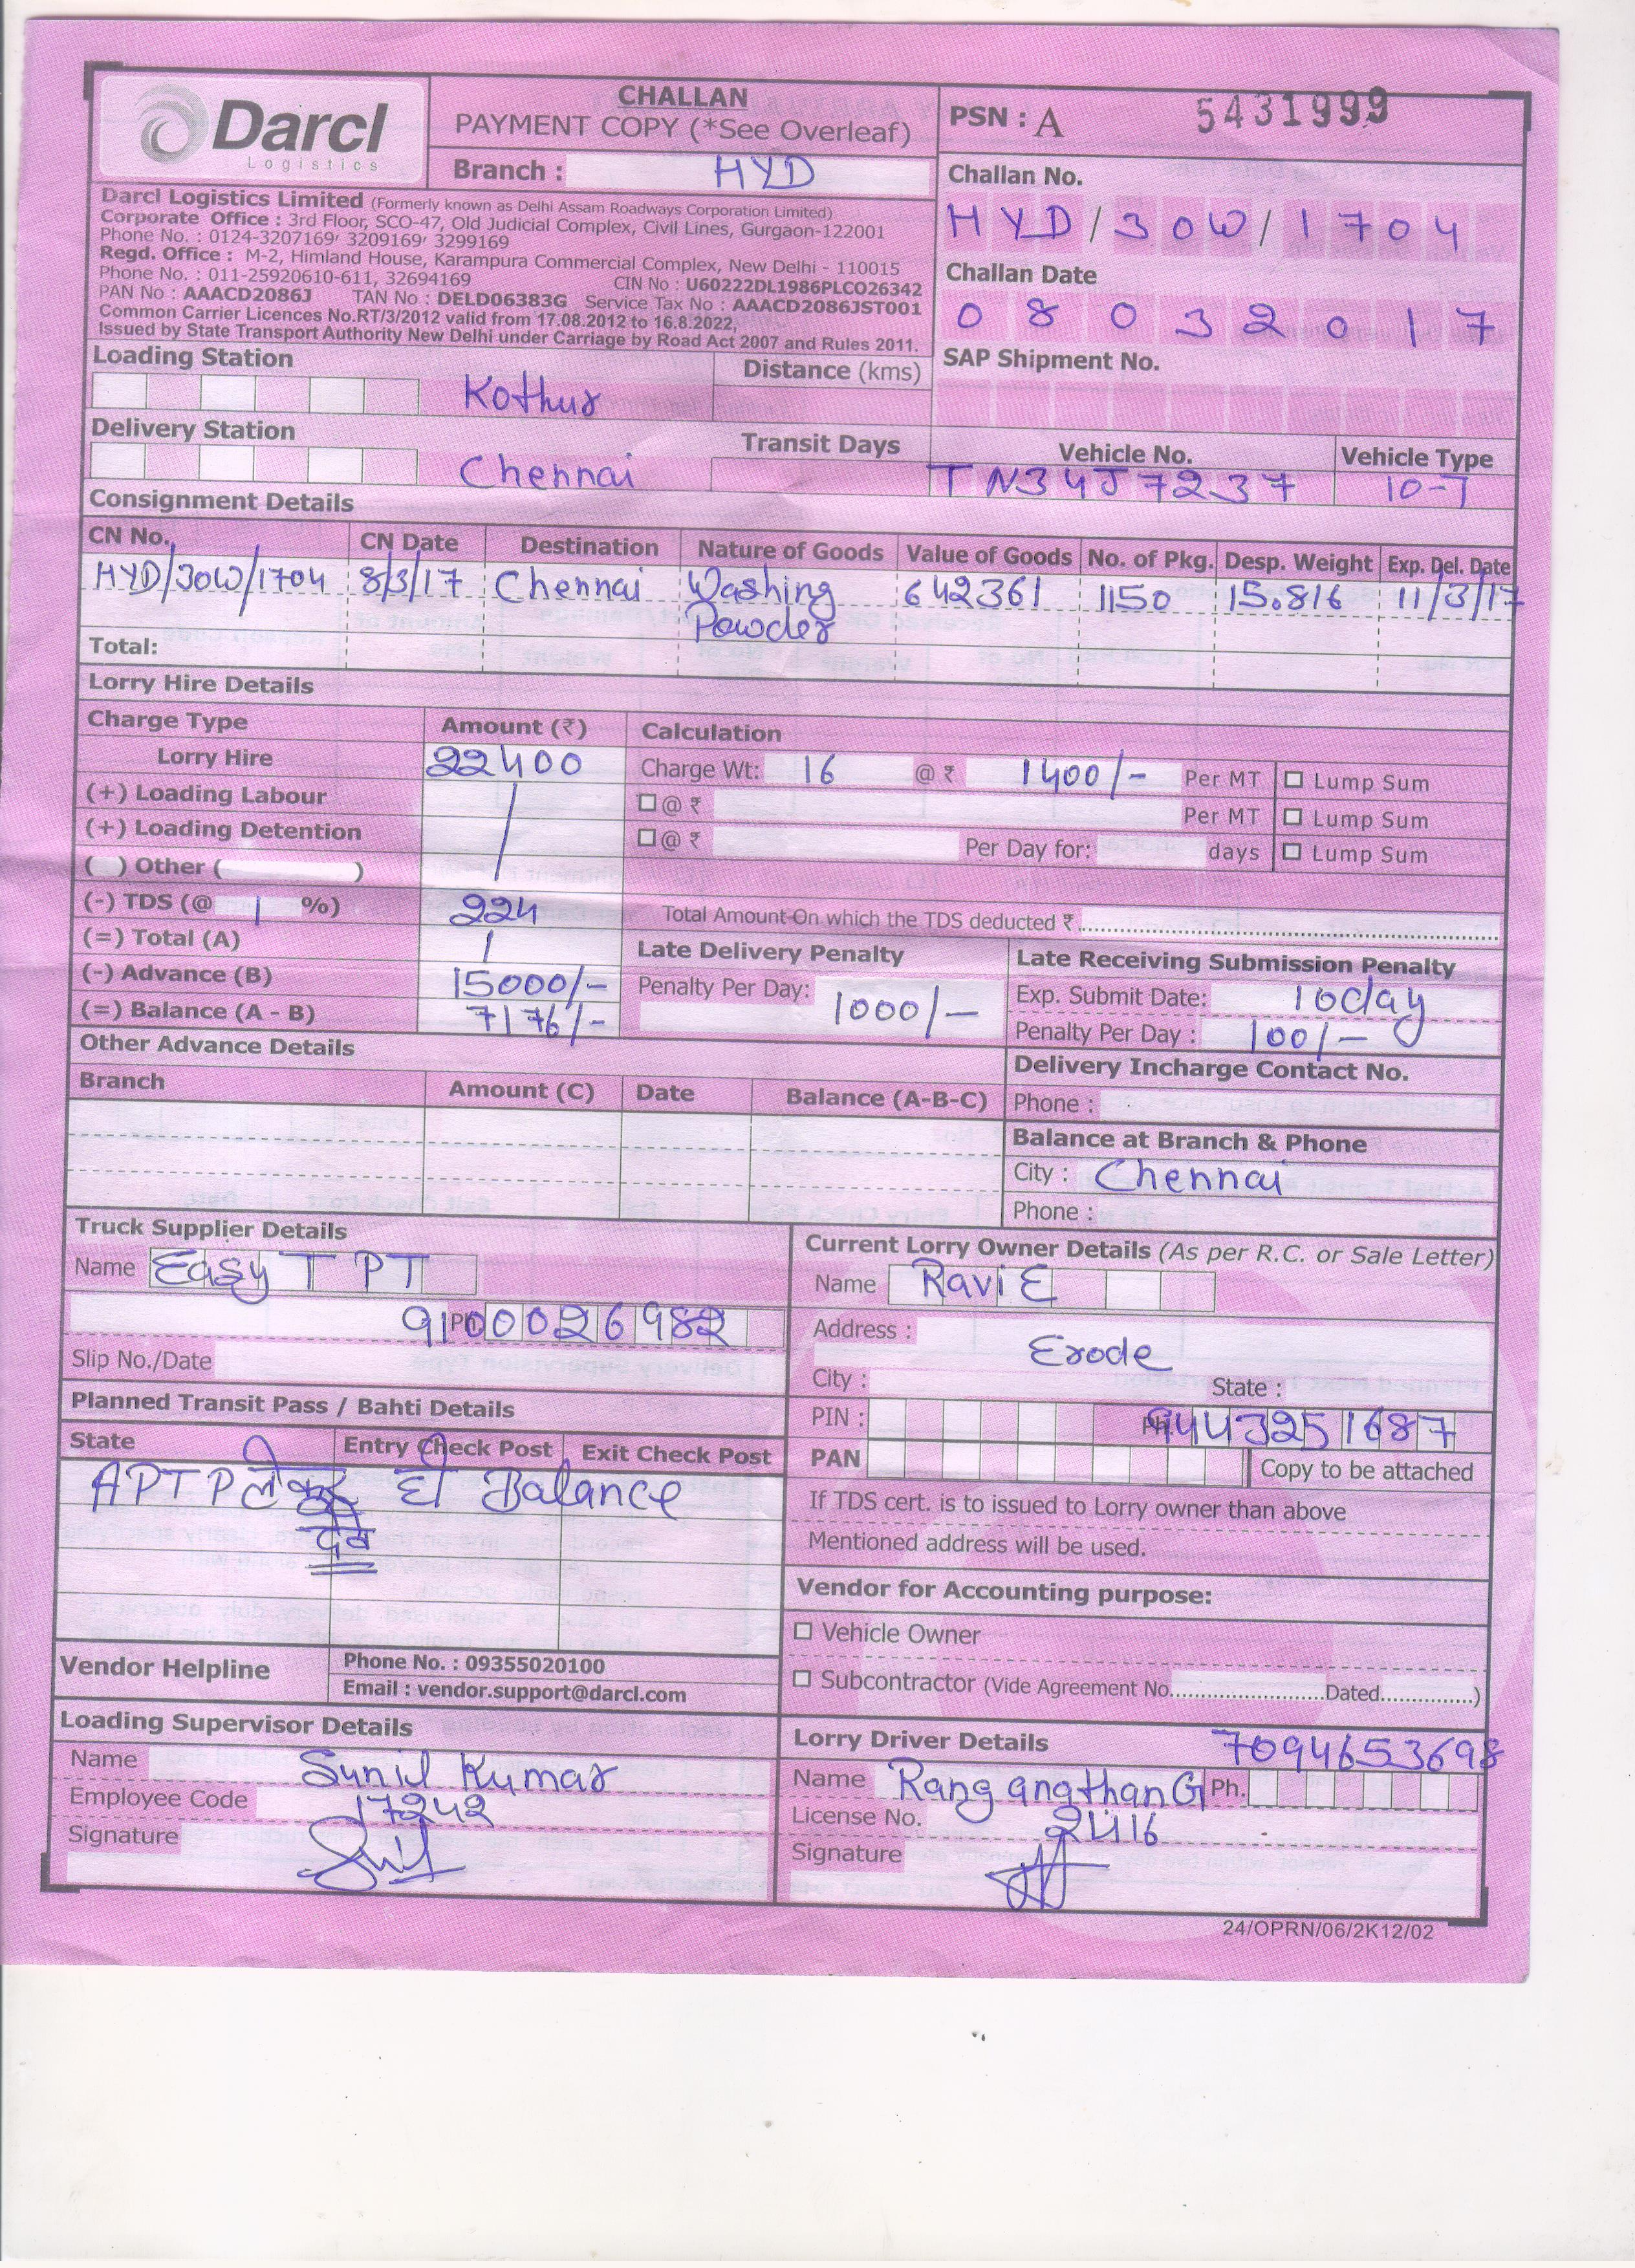 Darcl
Logistics
CHALLAN
PAYMENT COPY (*See Overleaf)
Branch : HYD
PSN : A 5431999
Challan No.
HYD/30W/1704
Challan Date
08032017
SAP Shipment No.
Darcl Logistics Limited (Formerly known as Delhi Assam Roadways Corporation Limited)
Corporate Office : 3rd Floor, SCO-47, Old Judicial Complex, Civil Lines, Gurgaon-122001
Phone No. : 0124-3207169, 3209169, 3299169
Regd. Office : M-2, Himland House, Karampura Commercial Complex, New Delhi - 110015
Phone No. : 011-25920610-611, 32694169 CIN No : U60222DL1986PLCO26342
PAN No : AAACD2086J TAN No : DELD06383G Service Tax No : AAACD2086JST001
Common Carrier Licences No.RT/3/2012 valid from 17.08.2012 to 16.8.2022,
Issued by State Transport Authority New Delhi under Carriage by Road Act 2007 and Rules 2011.
Loading Station Kothur Distance (kms)
Delivery Station Chennai Transit Days
Vehicle No. Vehicle Type
TN34J7237 10-T
Consignment Details
CN No. CN Date Destination Nature of Goods Value of Goods No. of Pkg. Desp. Weight Exp. Del. Date
HYD/30W/1704 8/3/17 Chennai Washing 642361 1150 15.816 11/3/17
Powder
Total:
Lorry Hire Details
Charge Type Amount (₹) Calculation
Lorry Hire 22400 Charge Wt: 16 @ ₹ 1400/- Per MT Lump Sum
(+) Loading Labour @ ₹ Per MT Lump Sum
(+) Loading Detention @ ₹ Per Day for: days Lump Sum
( ) Other ( )
(-) TDS (@ 1 %) 224 Total Amount On which the TDS deducted ₹
(=) Total (A) Late Delivery Penalty Late Receiving Submission Penalty
(-) Advance (B) 15000/- Penalty Per Day: 1000/- Exp. Submit Date: 10day
(=) Balance (A - B) 7176/- Penalty Per Day : 100/-
Other Advance Details Delivery Incharge Contact No.
Branch Amount (C) Date Balance (A-B-C) Phone :
Balance at Branch & Phone
City : Chennai
Phone :
Truck Supplier Details
Name Easy T PT
Ph. 9100026982
Slip No./Date
Current Lorry Owner Details (As per R.C. or Sale Letter)
Name Ravi E
Address : Erode
City : State :
PIN : Ph. 9443251687
PAN Copy to be attached
If TDS cert. is to issued to Lorry owner than above
Mentioned address will be used.
Planned Transit Pass / Bahti Details
State Entry Check Post Exit Check Post
APTP लेकर ही Balance
देवे
Vendor for Accounting purpose:
Vehicle Owner
Subcontractor (Vide Agreement No. Dated )
Vendor Helpline Phone No. : 09355020100
Email : vendor.support@darcl.com
Loading Supervisor Details
Name Sunil Kumar
Employee Code 17242
Signature
Lorry Driver Details 7094653698
Name Rang angthan G Ph.
License No. 2416
Signature
24/OPRN/06/2K12/02